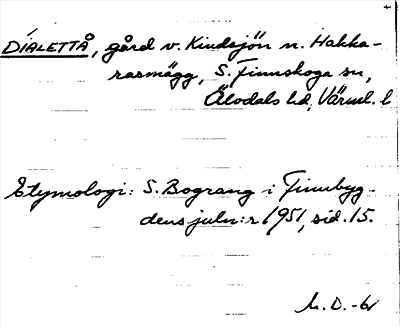 DÍALETTÅ, gård v. Kindsjön n. Hakka-
rasmägg, S. Finnskoga sn,
Älvdals hd, Värml. l
Etymologi: S. Bograng i Finnbyg-
dens juln:r 1951, sid. 15.
M.D. -61